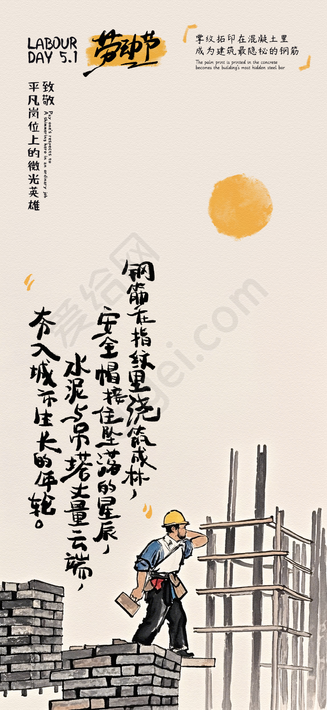 LABOUR
DAY 5.1
劳动节
掌纹拓印在混凝土里
成为建筑最隐秘的钢筋
The palm print is printed in the concrete
becomes the building's most hidden steel bar
致敬
平凡岗位上的微光英雄
钢筋在指纹里浇筑成林，
安全帽接住坠落的星辰，
水泥与吊塔丈量云端，
夯入城市生长的年轮。
爱给网